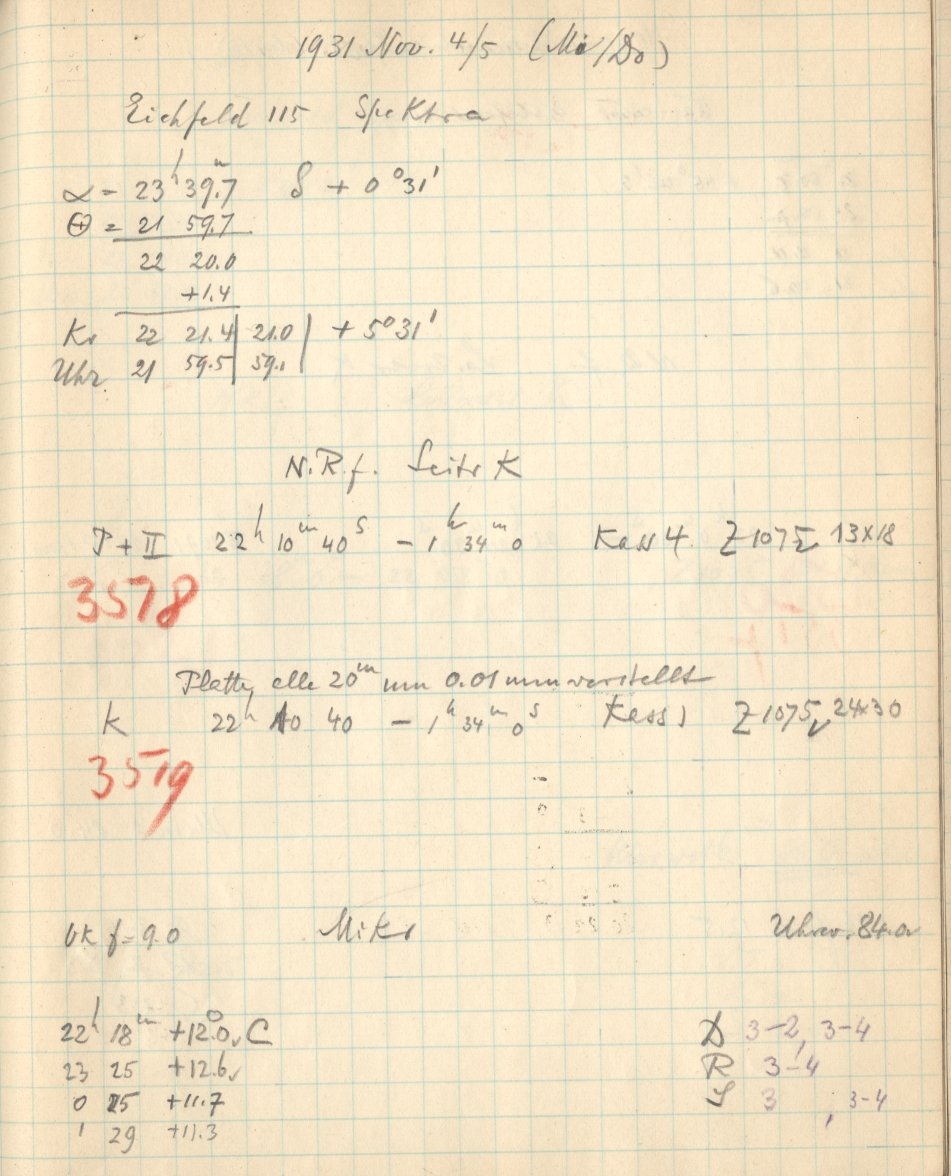 1931 Nov. 4/5 (Mi/Do)
Eichfeld 115 Spektra
α = 23ʰ 39ᵐ.7 δ + 0°31'
Θ = 21 59.7
22 20.0
+1.4
Kr 22 21.4 | 21.0 | + 5°31'
Uhr 21 59.5 | 59.1 |
N.R.f. Seite K
P + II 22ʰ 10ᵐ 40ˢ – 1ʰ 34ᵐ 0 Kass 4. Z 1075 13x18
3578
Platte alle 20ᵐ um 0.01 mm verstellt
K 22ʰ 10 40 – 1ʰ 34ᵐ 0ˢ Kass 1 Z 1075, 24x30
3579
f = 9.0 Mikr Uhrw. 84.0
22ʰ 18ᵐ +12°.0 C
23 25 +12.6
0 25 +11.7
1 29 +11.3
D 3-2, 3-4
R 3-4
S 3 , 3-4